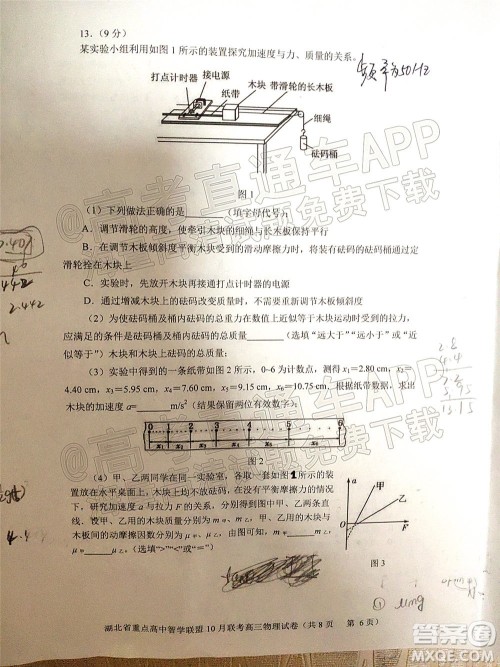 13.（9 分）
某实验小组利用如图 1 所示的装置探究加速度与力、质量的关系。
频率为50Hz
打点计时器
接电源
纸带
木块
带滑轮的长木板
细绳
砝码桶
图 1
（1）下列做法正确的是（填字母代号）
A．调节滑轮的高度，使牵引木块的细绳与长木板保持平行
B．在调节木板倾斜度平衡木块受到的滑动摩擦力时，将装有砝码的砝码桶通过定
滑轮拴在木块上
C．实验时，先放开木块再接通打点计时器的电源
D．通过增减木块上的砝码改变质量时，不需要重新调节木板倾斜度
（2）为使砝码桶及桶内砝码的总重力在数值上近似等于木块运动时受到的拉力，
应满足的条件是砝码桶及桶内砝码的总质量（选填“远大于”“远小于”或“近
似等于”）木块和木块上砝码的总质量；
（3）实验中得到的一条纸带如图 2 所示，0~6 为计数点，测得 x₁=2.80 cm，x₂=
4.40 cm，x₃=5.95 cm，x₄=7.60 cm，x₅=9.15 cm，x₆=10.75 cm，根据纸带数据，求出
木块的加速度 a=m/s²（结果保留两位有效数字）；
0 1 2 3 4 5 6
x₁ x₂ x₃ x₄ x₅ x₆
图 2
（4）甲、乙两同学在同一实验室，各取一套如图1所示的装
置放在水平桌面上，木块上均不放砝码，在没有平衡摩擦力的情况
下，研究加速度 a 与拉力 F 的关系，分别得到如图 3 中甲、乙两条
直线，设甲、乙用的木块质量分别为 m甲、m乙，甲、乙用的木块与
木板间的动摩擦因数分别为 μ甲、μ乙，由图可知，m甲m乙，
μ甲μ乙，（选填“>”“<”或“=”）
a
甲
乙
F
图 3
μmg
湖北省重点高中智学联盟 10 月联考高三物理试卷（共 8 页 第 6 页）
高考直通车APP
免费下载